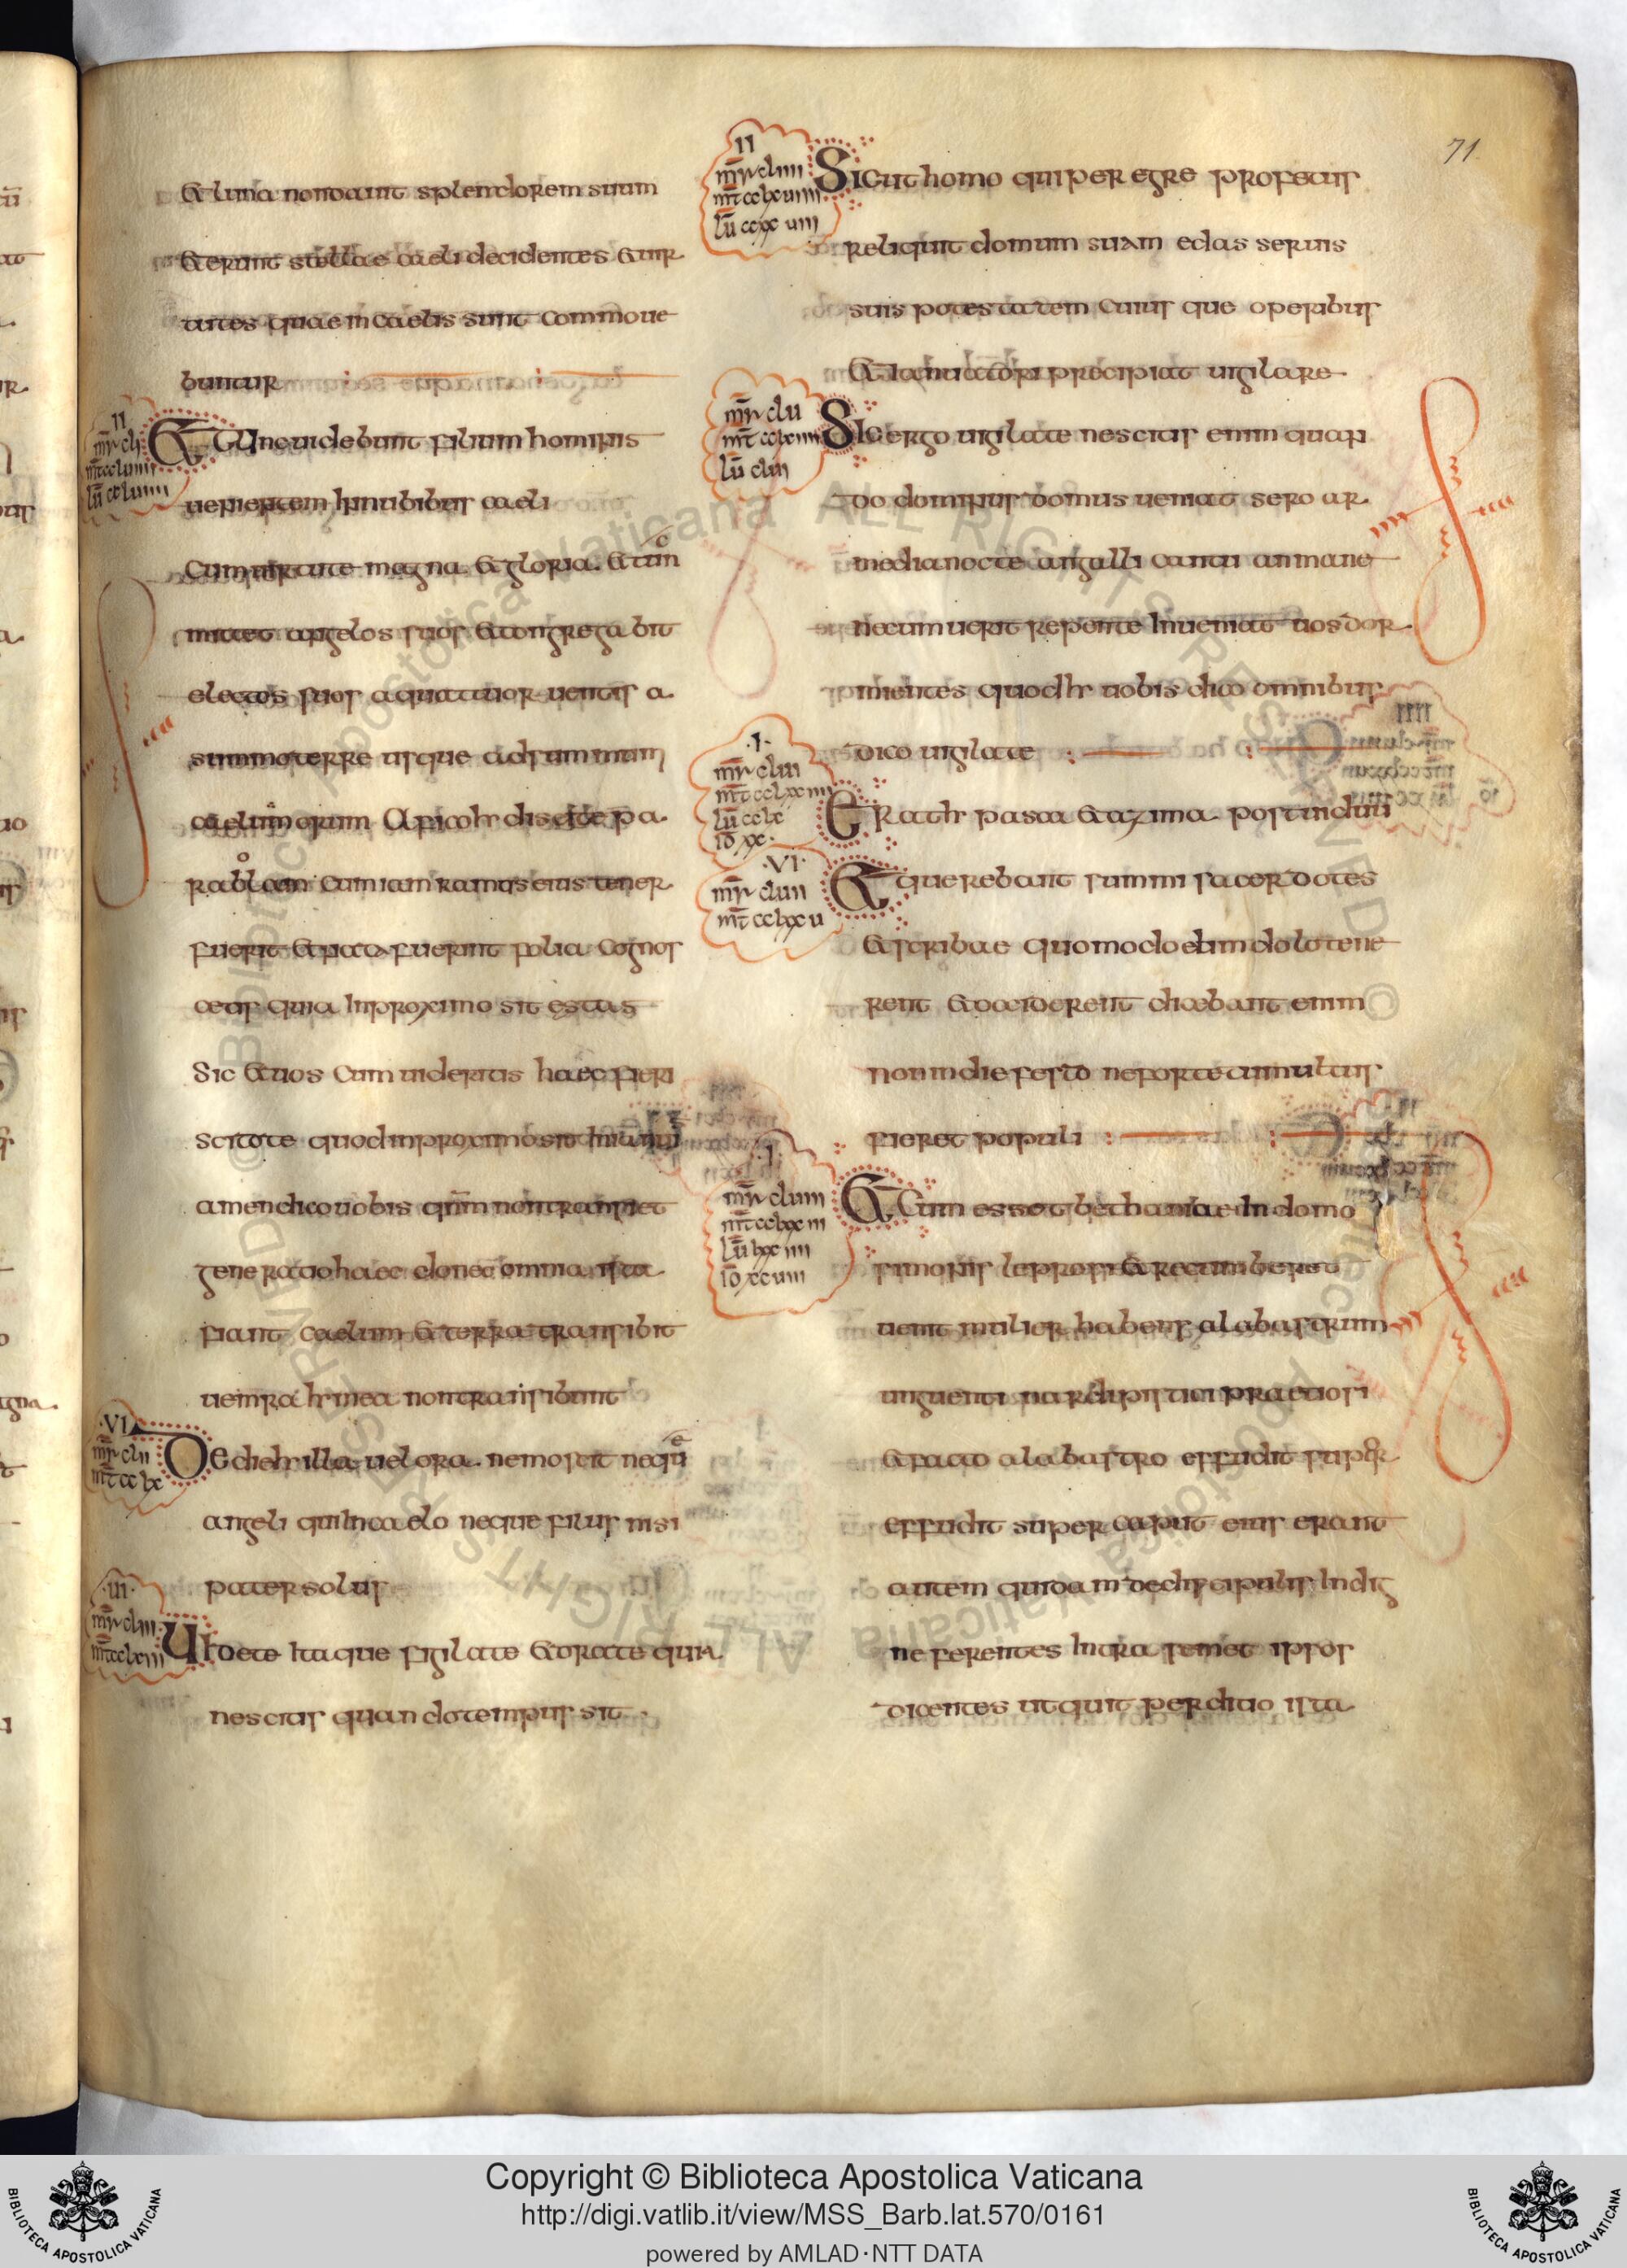 71
& luna non dauit splendorem suum
& erunt stellae caeli decidentes & uir
tutes quae in caelis sunt commoue
buntur
II
mr cli
mt ccluiiii
lu ccluiiii
& tunc uidebunt filium hominis
uenientem in nubibus caeli
cum uirtute magna & gloria. & tun
mittet angelos suos & congregabit
electos suos a quattuor uentis a
summo terre usque ad summum
caelum A fico hr discite pa
rabolam cum iam ramus eius tener
fuerit & nata fuerint folia cognos
cetis quia in proximo sit estas
Sic & uos cum uideritis haec fieri
scitote quod in proximo sit
amen dico uobis qnm non transiet
generatio haec donec omnia ista
fiant caelum & terra transibit
uerba hr mea non transibunt
VI
mr clii
mt cclx
De die hr illa uel ora nemo scit neque
angeli qui in caelo neque filius nisi
pater solus
III
mr cliii
mt cclxiii
Uidete itaque figilate & orate quia
nescitis quando tempus sit
II
mr cliiii
mt cclxuiiii
lu ccxxuiii
Sicut homo qui per egre profectus
reliquit domum suam e das seruis
suis potestatem cuius que operibus
& ianuatori precipiat uigilare
mr clu
lu cliii
Sic ergo uigilate nescitis enim quan
do dominus domus ueniat sero ar
media nocte an galli cantu an mane
ne cum uerit repente inueniat uos dor
mientes quod hr uobis dico omnibus
dico uigilate
I
mr clui
mt cclxxiiii
lu cclx
io xx
Erat hr pasca & azima post in duu
VI
mr cluii
mt cclxxu
& querebant summi sacerdotes
& scribae quomodo eum dolo tene
rent & occiderent dicebant enim
non in die festo ne forte tumultus
fieret populi
I
mr cluiii
mt cclxxui
lu lxxiiii
io xcuiii
& cum esset bethaniae in domo
simonis leprosi & recumberet
uenit mulier habens alabastrum
unguenti nardi pistici praetiosi
& facto alabastro effudit super
effudit super caput eius erant
autem quidam de discipulis indig
ne ferentes intra semet ipsos
dicentes ut quit perditio ista
Copyright © Biblioteca Apostolica Vaticana
http://digi.vatlib.it/view/MSS_Barb.lat.570/0161
powered by AMLAD·NTT DATA
BIBLIOTECA APOSTOLICA VATICANA
BIBLIOTECA APOSTOLICA VATICANA